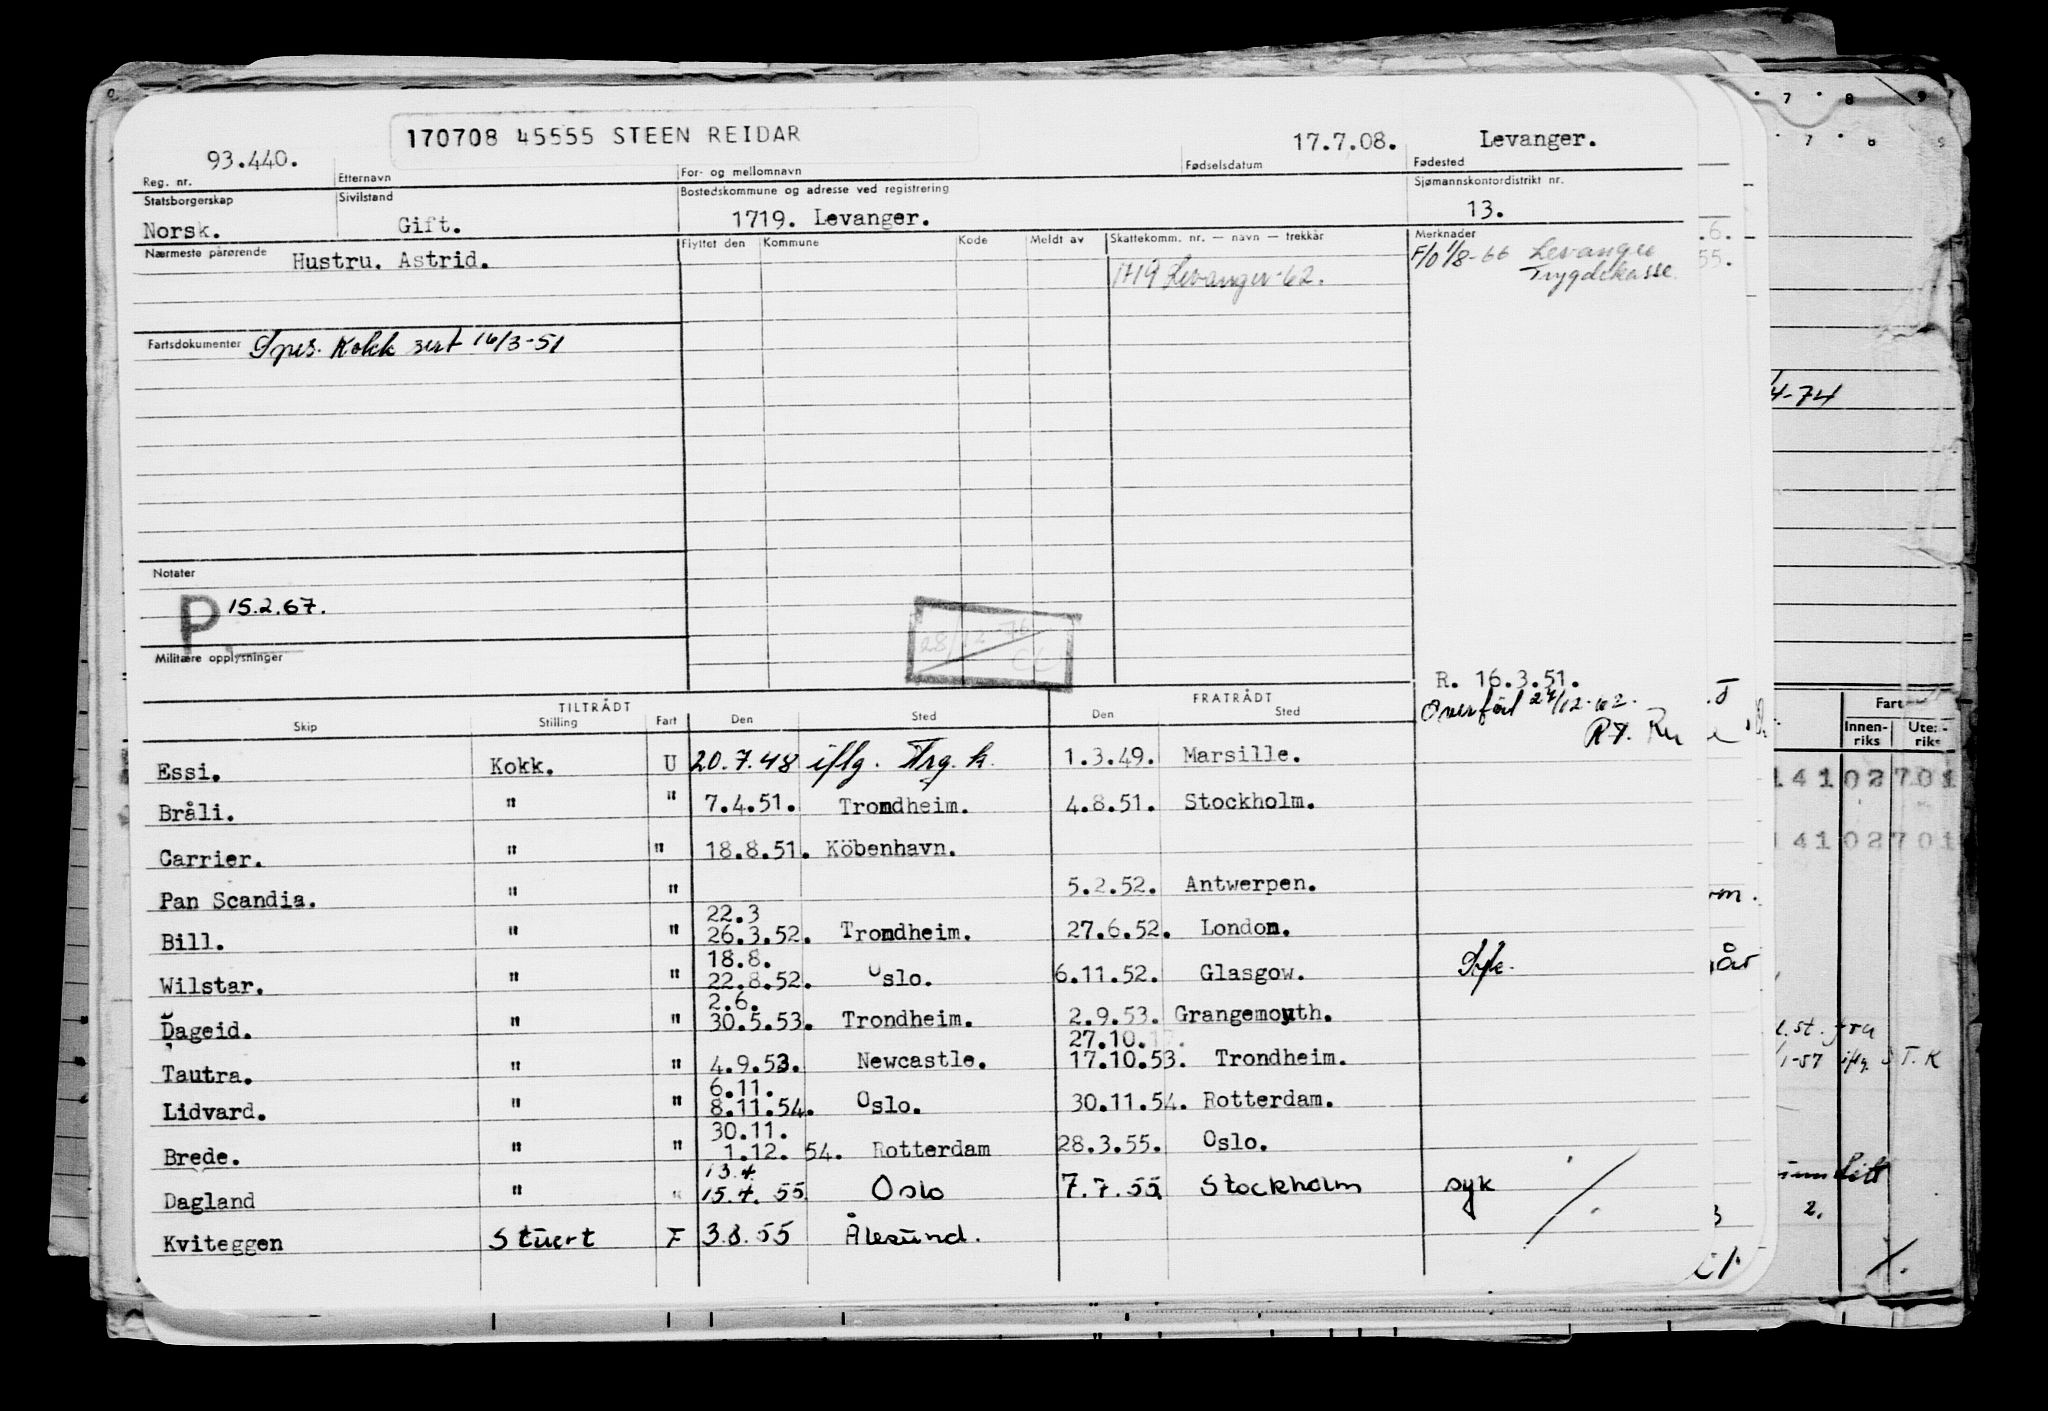 170708 45555 STEEN REIDAR
93.440. 17.7.08. Levanger.
Reg. nr. Etternavn For- og mellomnavn Fødselsdatum Fødested
Statsborgerskap Sivilstand Bostedskommune og adresse ved registrering Sjømannskontordistrikt nr.
Norsk. Gift. 1719. Levanger. 13.
Nærmeste pårørende Hustru. Astrid. Flyttet den Kommune Kode Meldt av Skattekomm. nr. — navn — trekkår Merknader
1719 Levanger-62. F/O 1/8-66 Levanger
Trygdekasse.
Fartsdokumenter Spes. Kokk sert 16/3-51
Notater
P 15.2.67.
28/12-76
Militære opplysninger
R. 16.3.51.
Overført 27/12-62.
TILTRÅDT FRATRÅDT
Skip Stilling Fart Den Sted Den Sted
Essi. Kokk. U 20.7.48 iflg. Trg. k. 1.3.49. Marsille.
Bråli. " " 7.4.51. Trondheim. 4.8.51. Stockholm.
Carrier. " " 18.8.51. Köbenhavn.
Pan Scandia. " " 5.2.52. Antwerpen.
22.3
Bill. " " 26.3.52. Trondheim. 27.6.52. London.
18.8.
Wilstar. " " 22.8.52. Oslo. 6.11.52. Glasgow. Syk.
2.6.
Dageid. " " 30.5.53. Trondheim. 2.9.53. Grangemouth.
27.10.
Tautra. " " 4.9.53. Newcastle. 17.10.53. Trondheim.
6.11.
Lidvard. " " 8.11.54. Oslo. 30.11.54. Rotterdam.
30.11.
Brede. " " 1.12. 54. Rotterdam 28.3.55. Oslo.
13.4
Dagland " " 15.4. 55 Oslo 7.7.55 Stockholm syk
Kviteggen Stuert F 3.8.55 Ålesund.
7 8 9
7 8 9
.6.
55.
4-74
Fart
Innen-riks Ute-riks
14102701
14102701
om.
l.st. fra
1-57 iflg. S T.K
2.